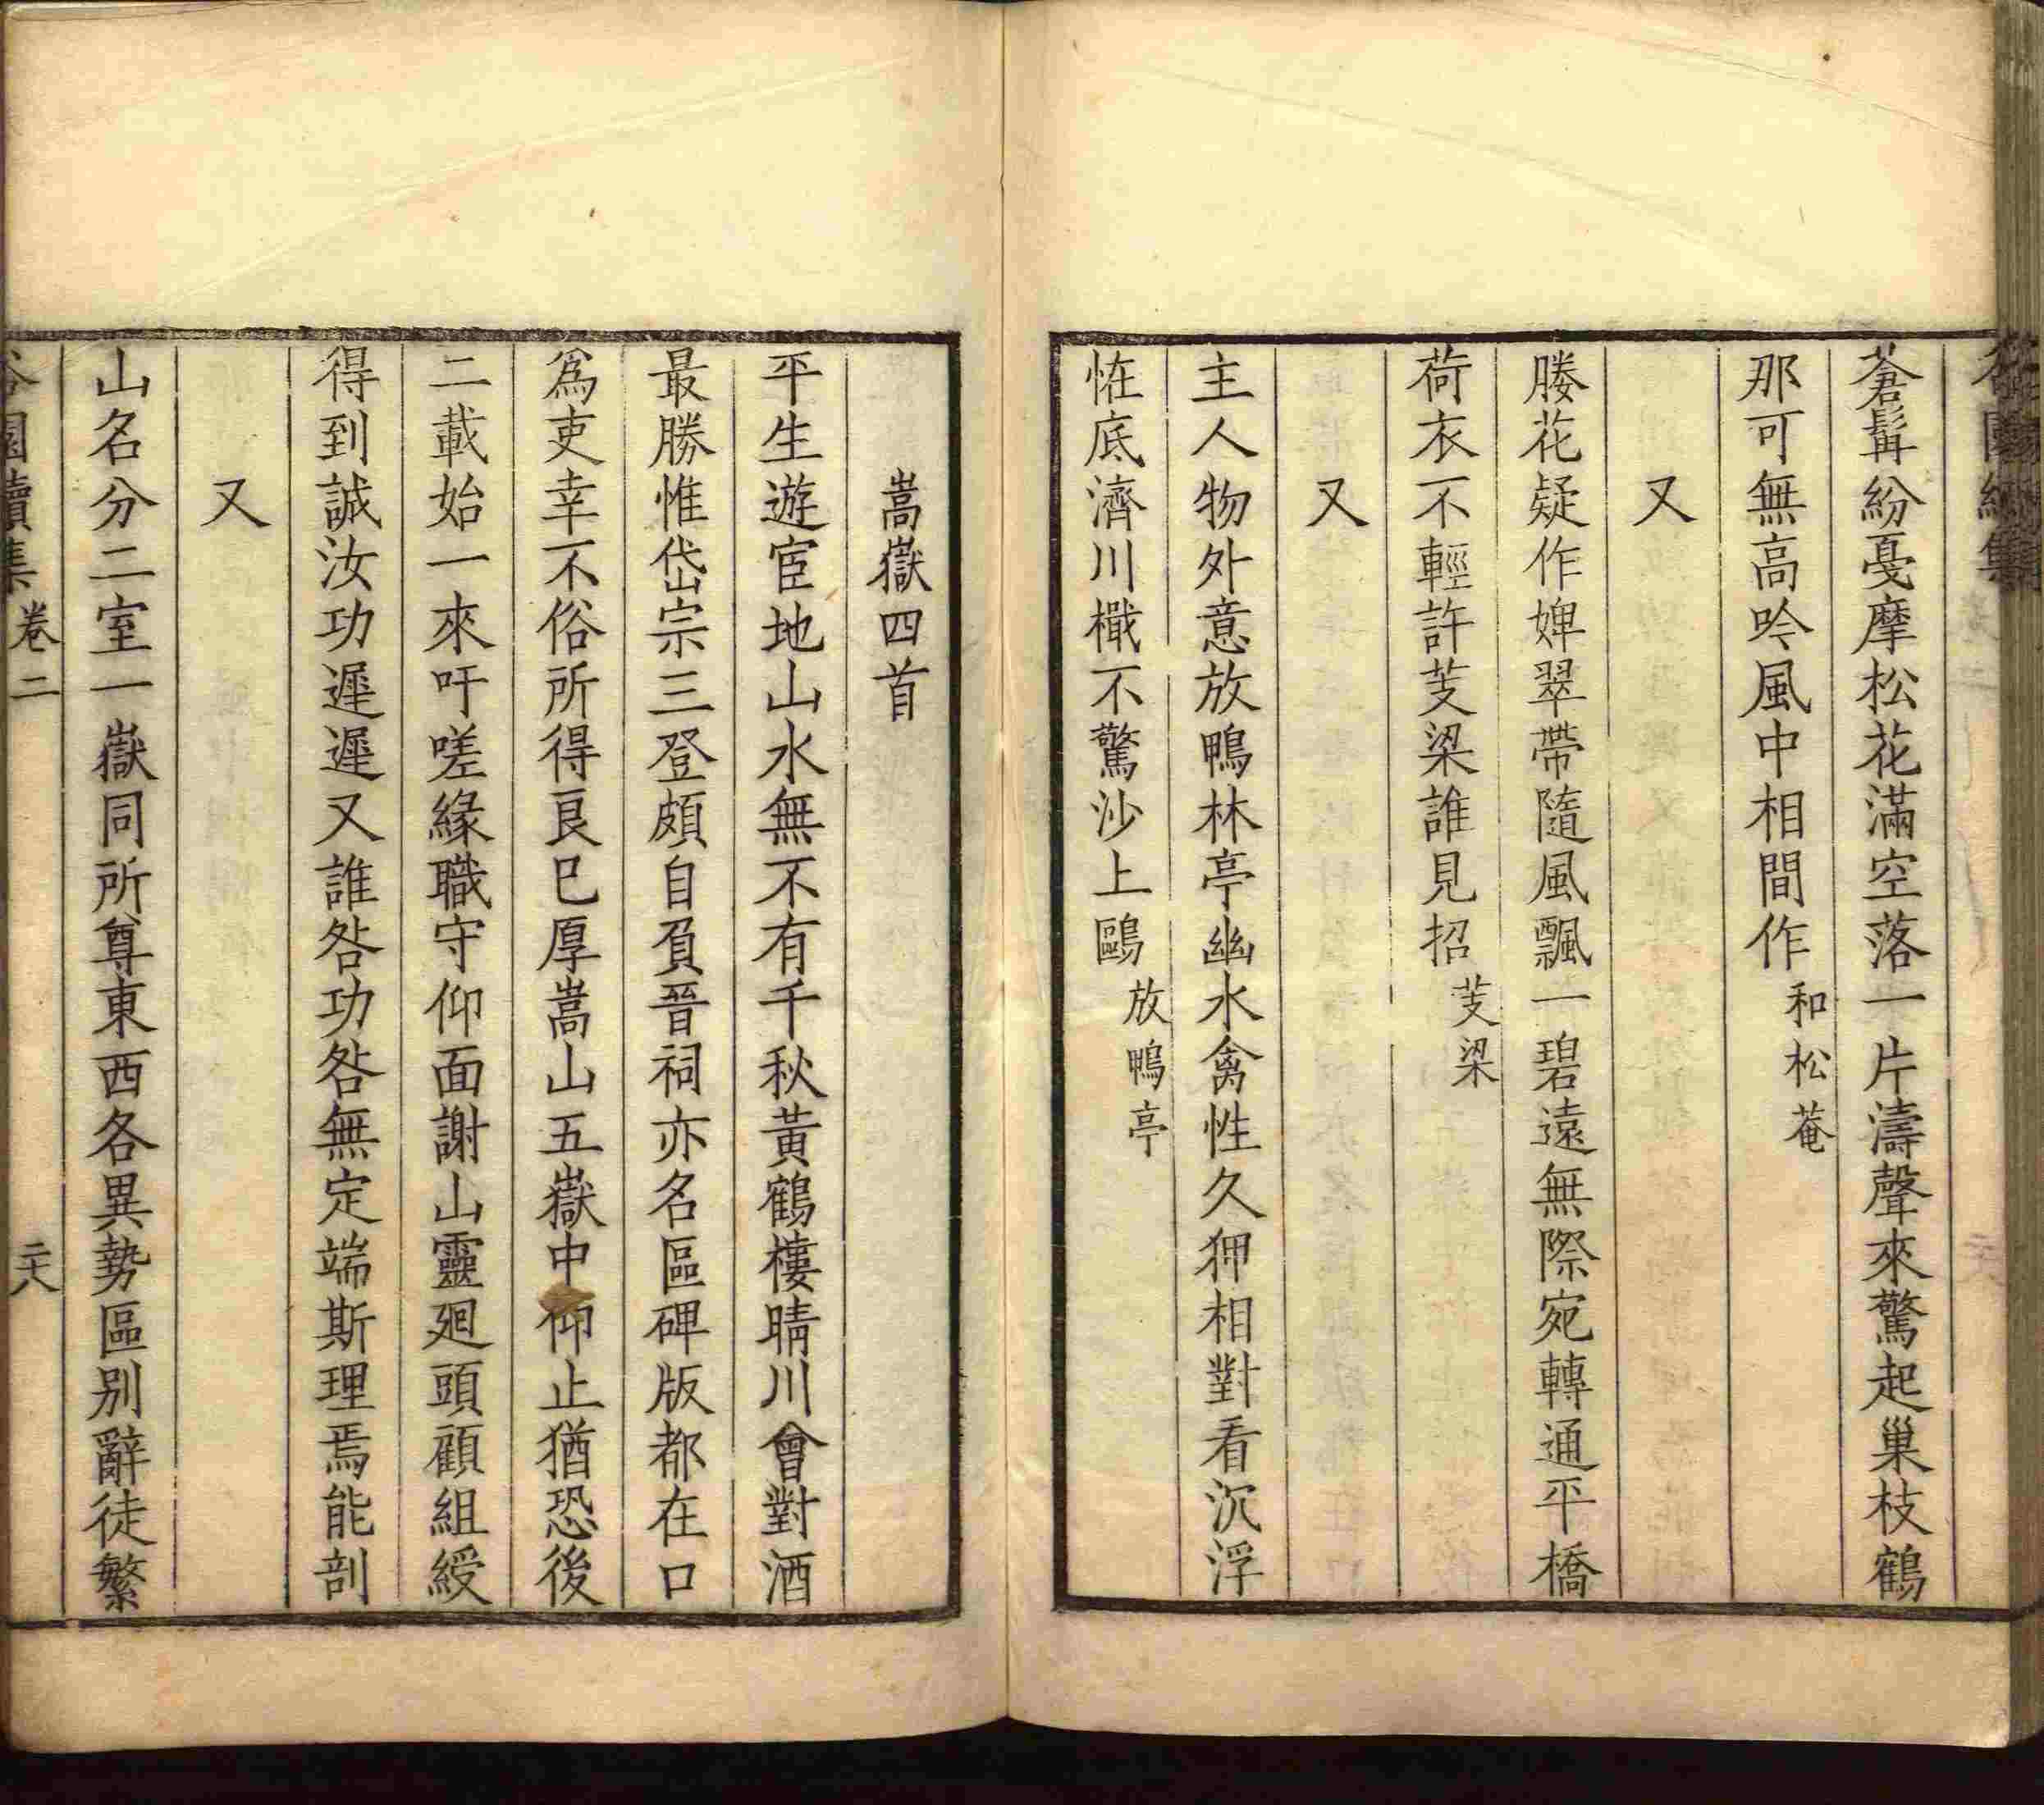 蒼髯紛戞摩松花滿空落一片濤聲來驚起巢枝鶴
那可無高吟風中相間作和松菴
又
媵花疑作婢翠帶隨風飄一碧遠無際宛轉通平橋
荷衣不輕許芰梁誰見招芰梁
又
主人物外意放鴨林亭幽水禽性久狎相對看沉浮
恠底濟川檝不驚沙上鷗放鴨亭
嵩嶽四首
平生遊宦地山水無不有千秋黃鶴樓晴川會對酒
最勝惟岱宗三登頗自負晉祠亦名區碑版都在口
爲吏幸不俗所得良已厚嵩山五嶽中仰止猶恐後
二載始一來吁嗟緣職守仰面謝山靈廻頭顧組綬
得到誠汝功遲遲又誰咎功咎無定端斯理焉能剖
又
山名分二室一嶽同所尊東西各異勢區别辭徒繁
園續集 卷二 二十八